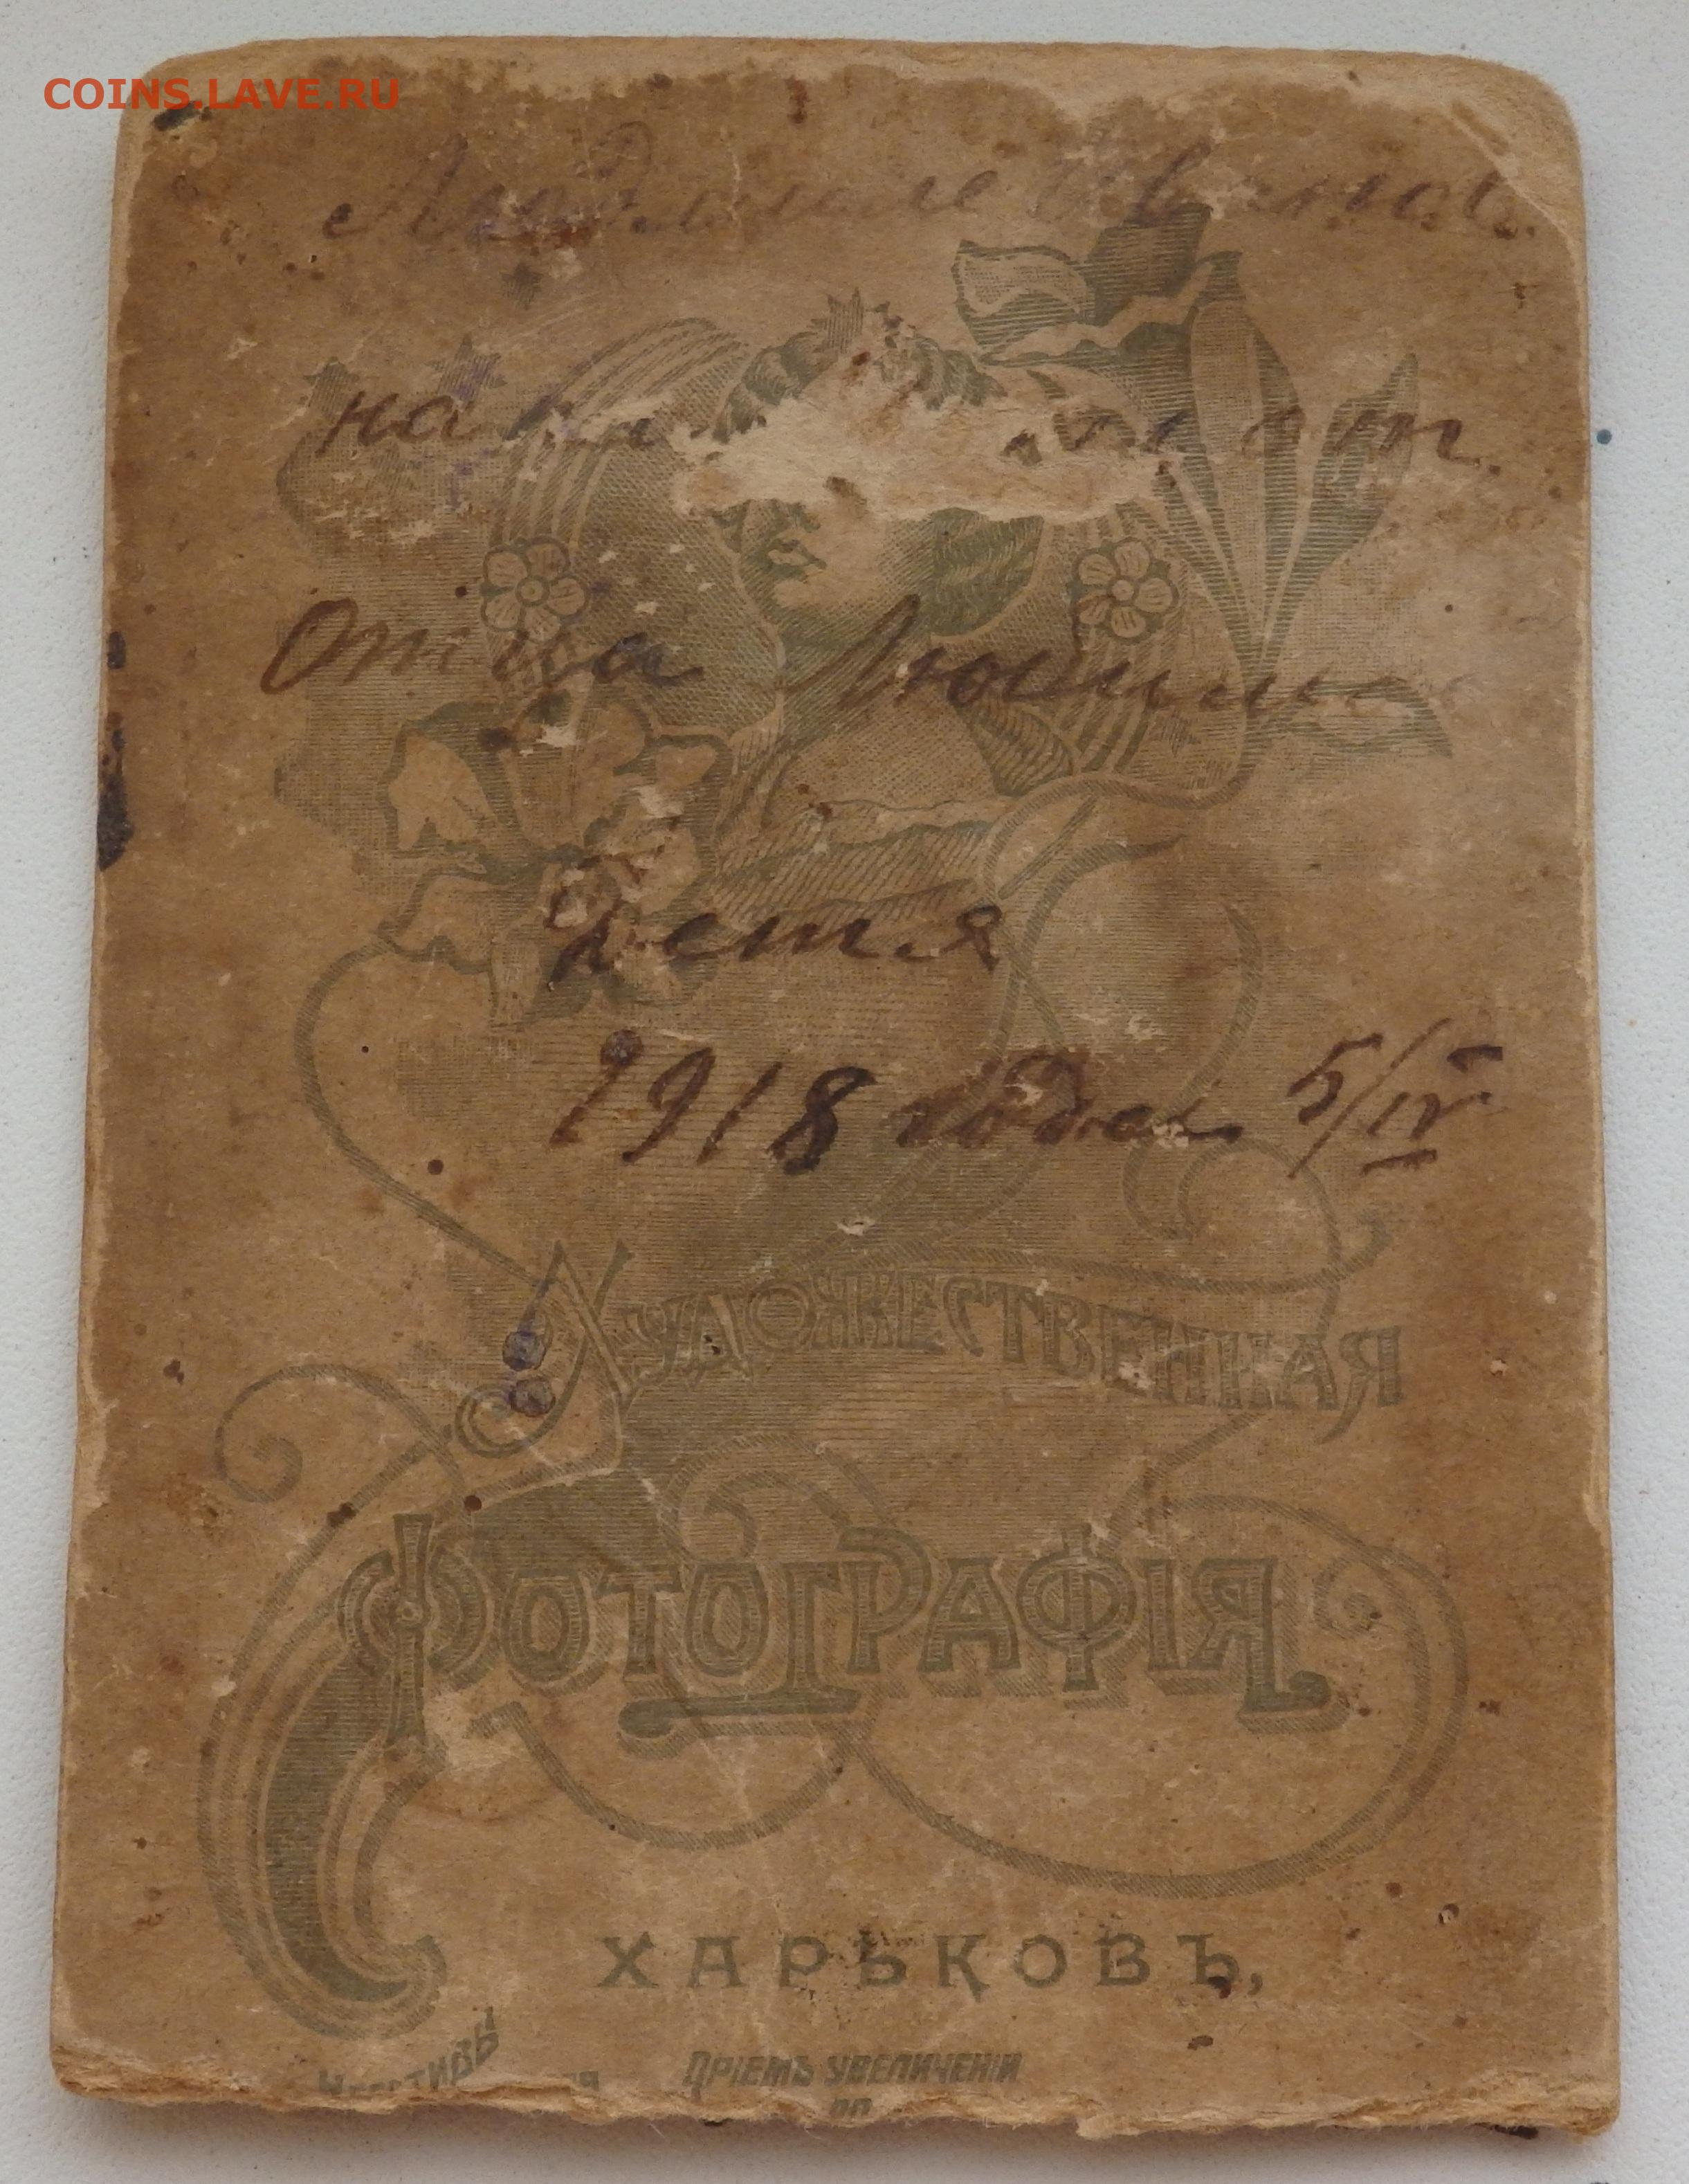 COINS.LAVE.RU
Людмиле
на от
Отца
Детя
1918 года 5/IV
Художественная
Фотографія
ХАРЬКОВЪ,
Негативы
Пріемъ увеличеній